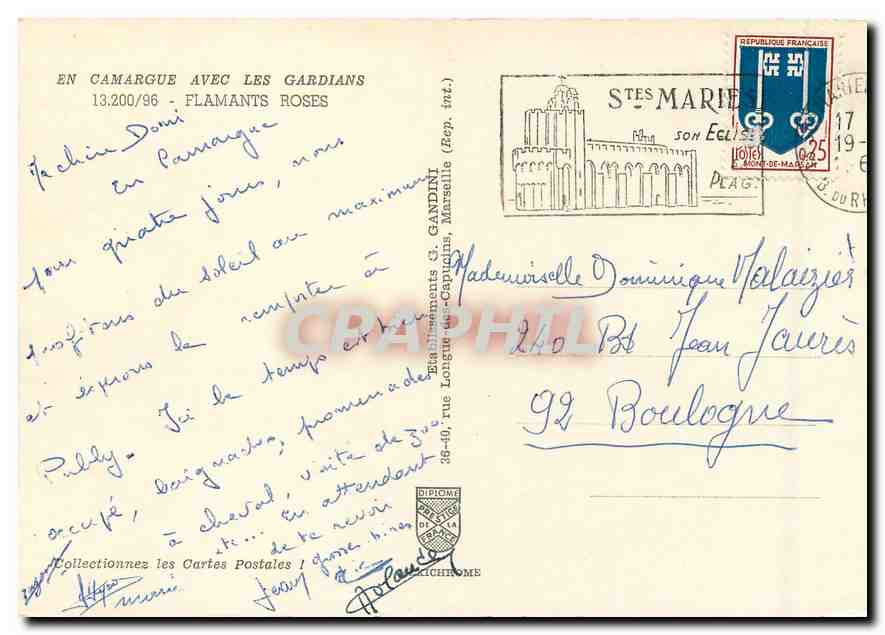 EN CAMARGUE AVEC LES GARDIANS
13.200/96 - FLAMANTS ROSES
Ma chère Domi
En Camargue
pour quatre jours, nous
profitons du soleil au maximum
et espérons le remporter à
Publy. Ici le temps est bien
occupé, baignades, promenades
à cheval, visite de zoo
etc... En attendant
de te revoir
grosses bises
Jean
Yolande
Collectionnez les Cartes Postales !
Etablissements G. GANDINI
36-40, rue Longue-des-Capucins, Marseille (Rep. int.)
DIPLOME
PRESTIGE
DE LA
FRANCE
RICHROME
STES MARIES
SON EGLISE
PLAG
REPUBLIQUE FRANÇAISE
POSTES 0,25
MONT-DE-MARSAN
17
19-
6
B. DU RH
CPAPHIL
Mademoiselle Dominique Malaizier
240 Bt Jean Jaurès
92 Boulogne